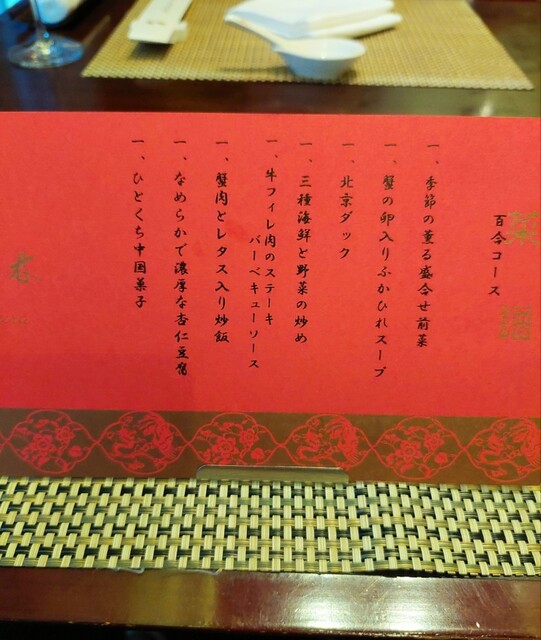 百合コース
一、季節の薫る盛合せ前菜
一、蟹の卵入りふかひれスープ
一、北京ダック
一、三種海鮮と野菜の炒め
一、牛フィレ肉のステーキ
バーベキューソース
一、蟹肉とレタス入り炒飯
一、なめらかで濃厚な杏仁豆腐
一、ひとくち中国菓子